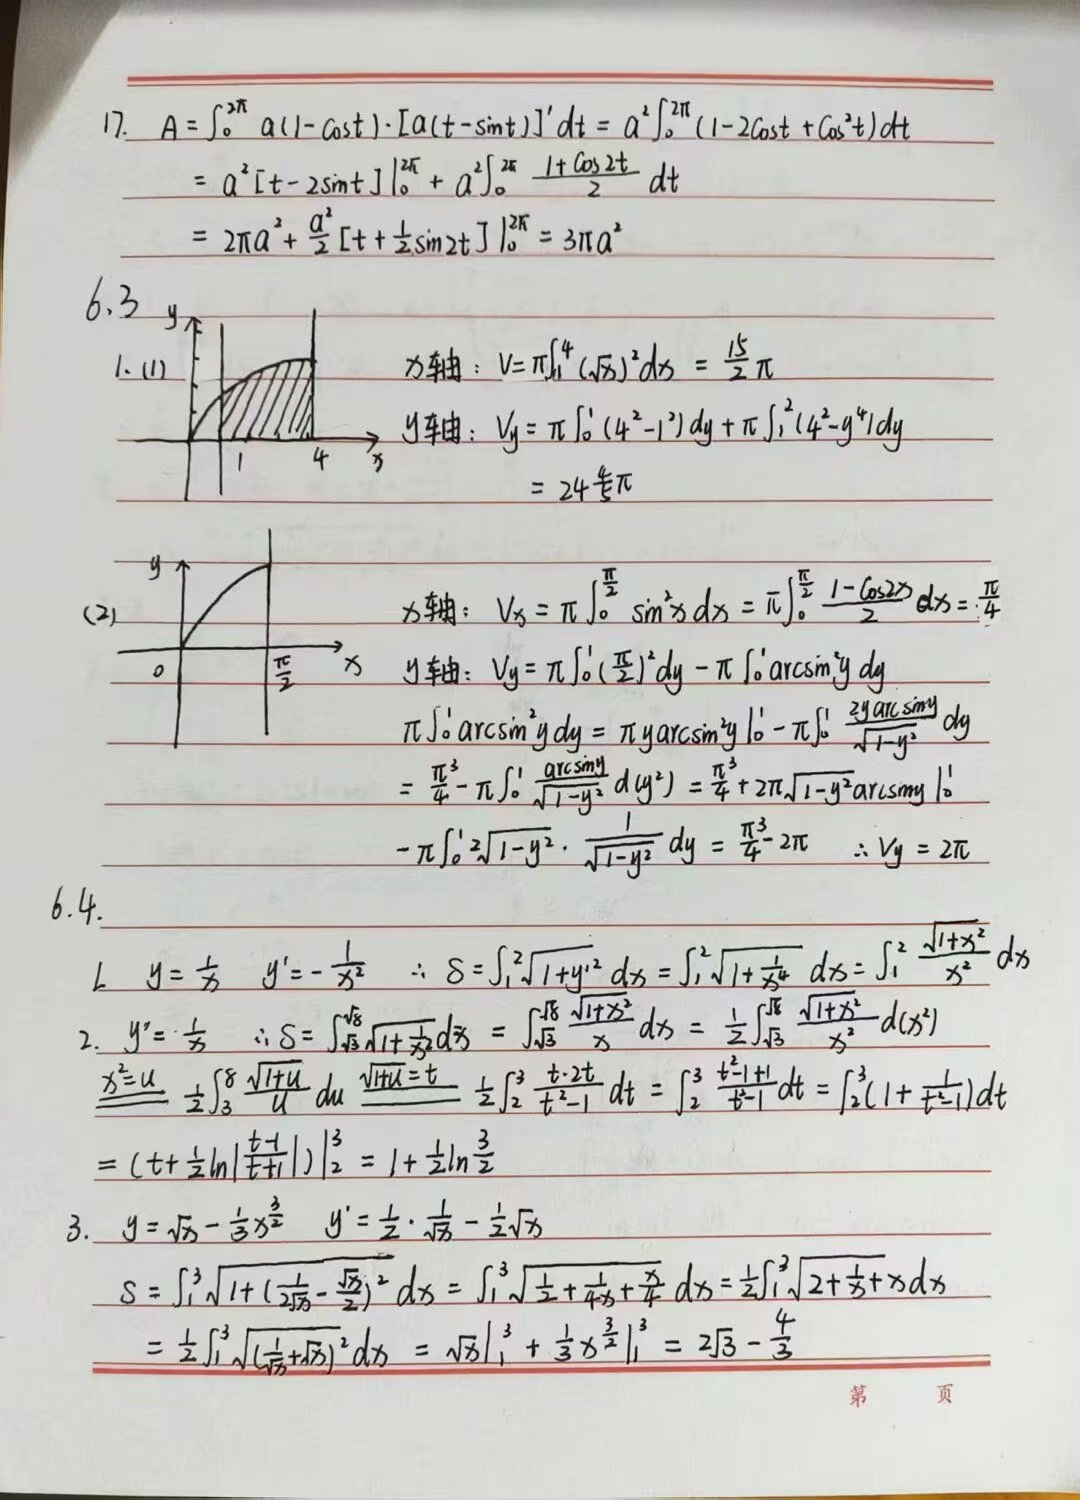 17. A = ∫₀^{2π} a(1-cost)·[a(t-sint)]'dt = a²∫₀^{2π}(1-2cost+cos²t)dt
= a²[t-2sint]|₀^{2π} + a²∫₀^{2π} (1+cos2t)/2 dt
= 2πa² + a²/2 [t+½sin2t]|₀^{2π} = 3πa²
6.3
1.(1) y 1 4 x
x轴: V=π∫₁⁴(√x)²dx = 15/2 π
y轴: Vy = π∫₀¹(4²-1²)dy + π∫₁²(4²-y⁴)dy
= 24 4/5 π
(2) y 0 π/2 x
x轴: Vx = π∫₀^{π/2} sin²x dx = π∫₀^{π/2} (1-cos2x)/2 dx = π²/4
y轴: Vy = π∫₀¹(π/2)²dy - π∫₀¹arcsin²y dy
π∫₀¹arcsin²y dy = πy arcsin²y|₀¹ - π∫₀¹ 2y arcsiny/√(1-y²) dy
= π³/4 - π∫₀¹ arcsiny/√(1-y²) d(y²) = π³/4 + 2π√(1-y²)arcsiny|₀¹
-π∫₀¹ 2√(1-y²)· 1/√(1-y²) dy = π³/4 - 2π ∴Vy = 2π
6.4.
1. y = 1/x y' = -1/x² ∴ S = ∫₁²√(1+y'²) dx = ∫₁²√(1+1/x⁴) dx = ∫₁² √(1+x²)/x² dx
2. y' = 1/x ∴S = ∫_{√3}^{√8}√(1+1/x²)dx = ∫_{√3}^{√8} √(1+x²)/x dx = ½∫_{√3}^{√8} √(1+x²)/x² d(x²)
x²=u ½∫₃⁸ √(1+u)/u du √(1+u)=t ½∫₂³ t·2t/(t²-1) dt = ∫₂³ (t²-1+1)/(t²-1) dt = ∫₂³(1+1/(t²-1))dt
= (t+½ln|(t-1)/(t+1)|)|₂³ = 1+½ln 3/2
3. y = √x - ⅓x^{3/2} y' = ½·1/√x - ½√x
S = ∫₁³√(1+(1/(2√x)-√x/2)²) dx = ∫₁³√(½+1/(4x)+x/4) dx = ½∫₁³√(2+1/x+x) dx
= ½∫₁³√((1/√x+√x)²) dx = √x|₁³ + ⅓x^{3/2}|₁³ = 2√3 - 4/3
第 页